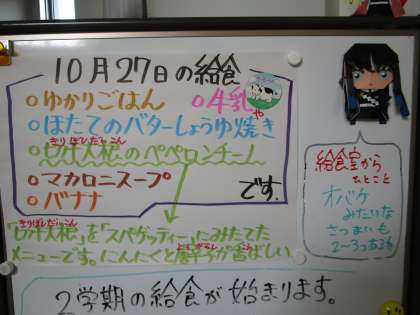 10月27日の給食
○ゆかりごはん ○牛乳や
○ほたてのバターしょうゆ焼き
きりぼしだいこん
○切干大根のペペロンチーノ
○マカロニスープ
○バナナ です。
きりぼしだいこん
「切干大根」を「スパゲッティー」にみたてた
とうがらし
メニューです。にんにくと唐辛子が香ばしい
2学期の給食が始まります。
給食室から
ひとこと
オバケ
みたいな
さつまいも
2〜3コある